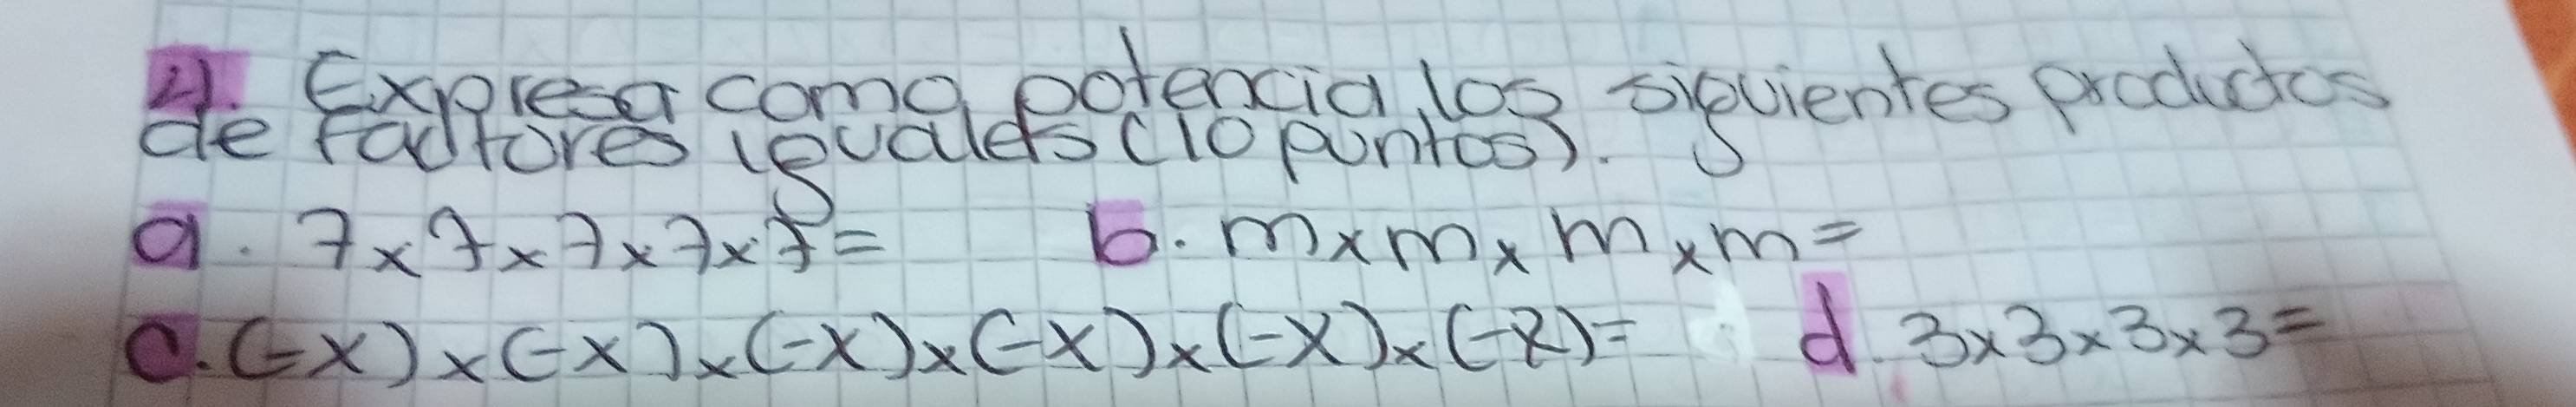 4. Expresa como potencia los siguientes productos
de factores iguales (10 puntos).
a. 7x7x7x7x7= b. mxmxmxm=
c. (-x)x(-x)x(-x)x(-x)x(-x)x(-x)= d. 3x3x3x3=